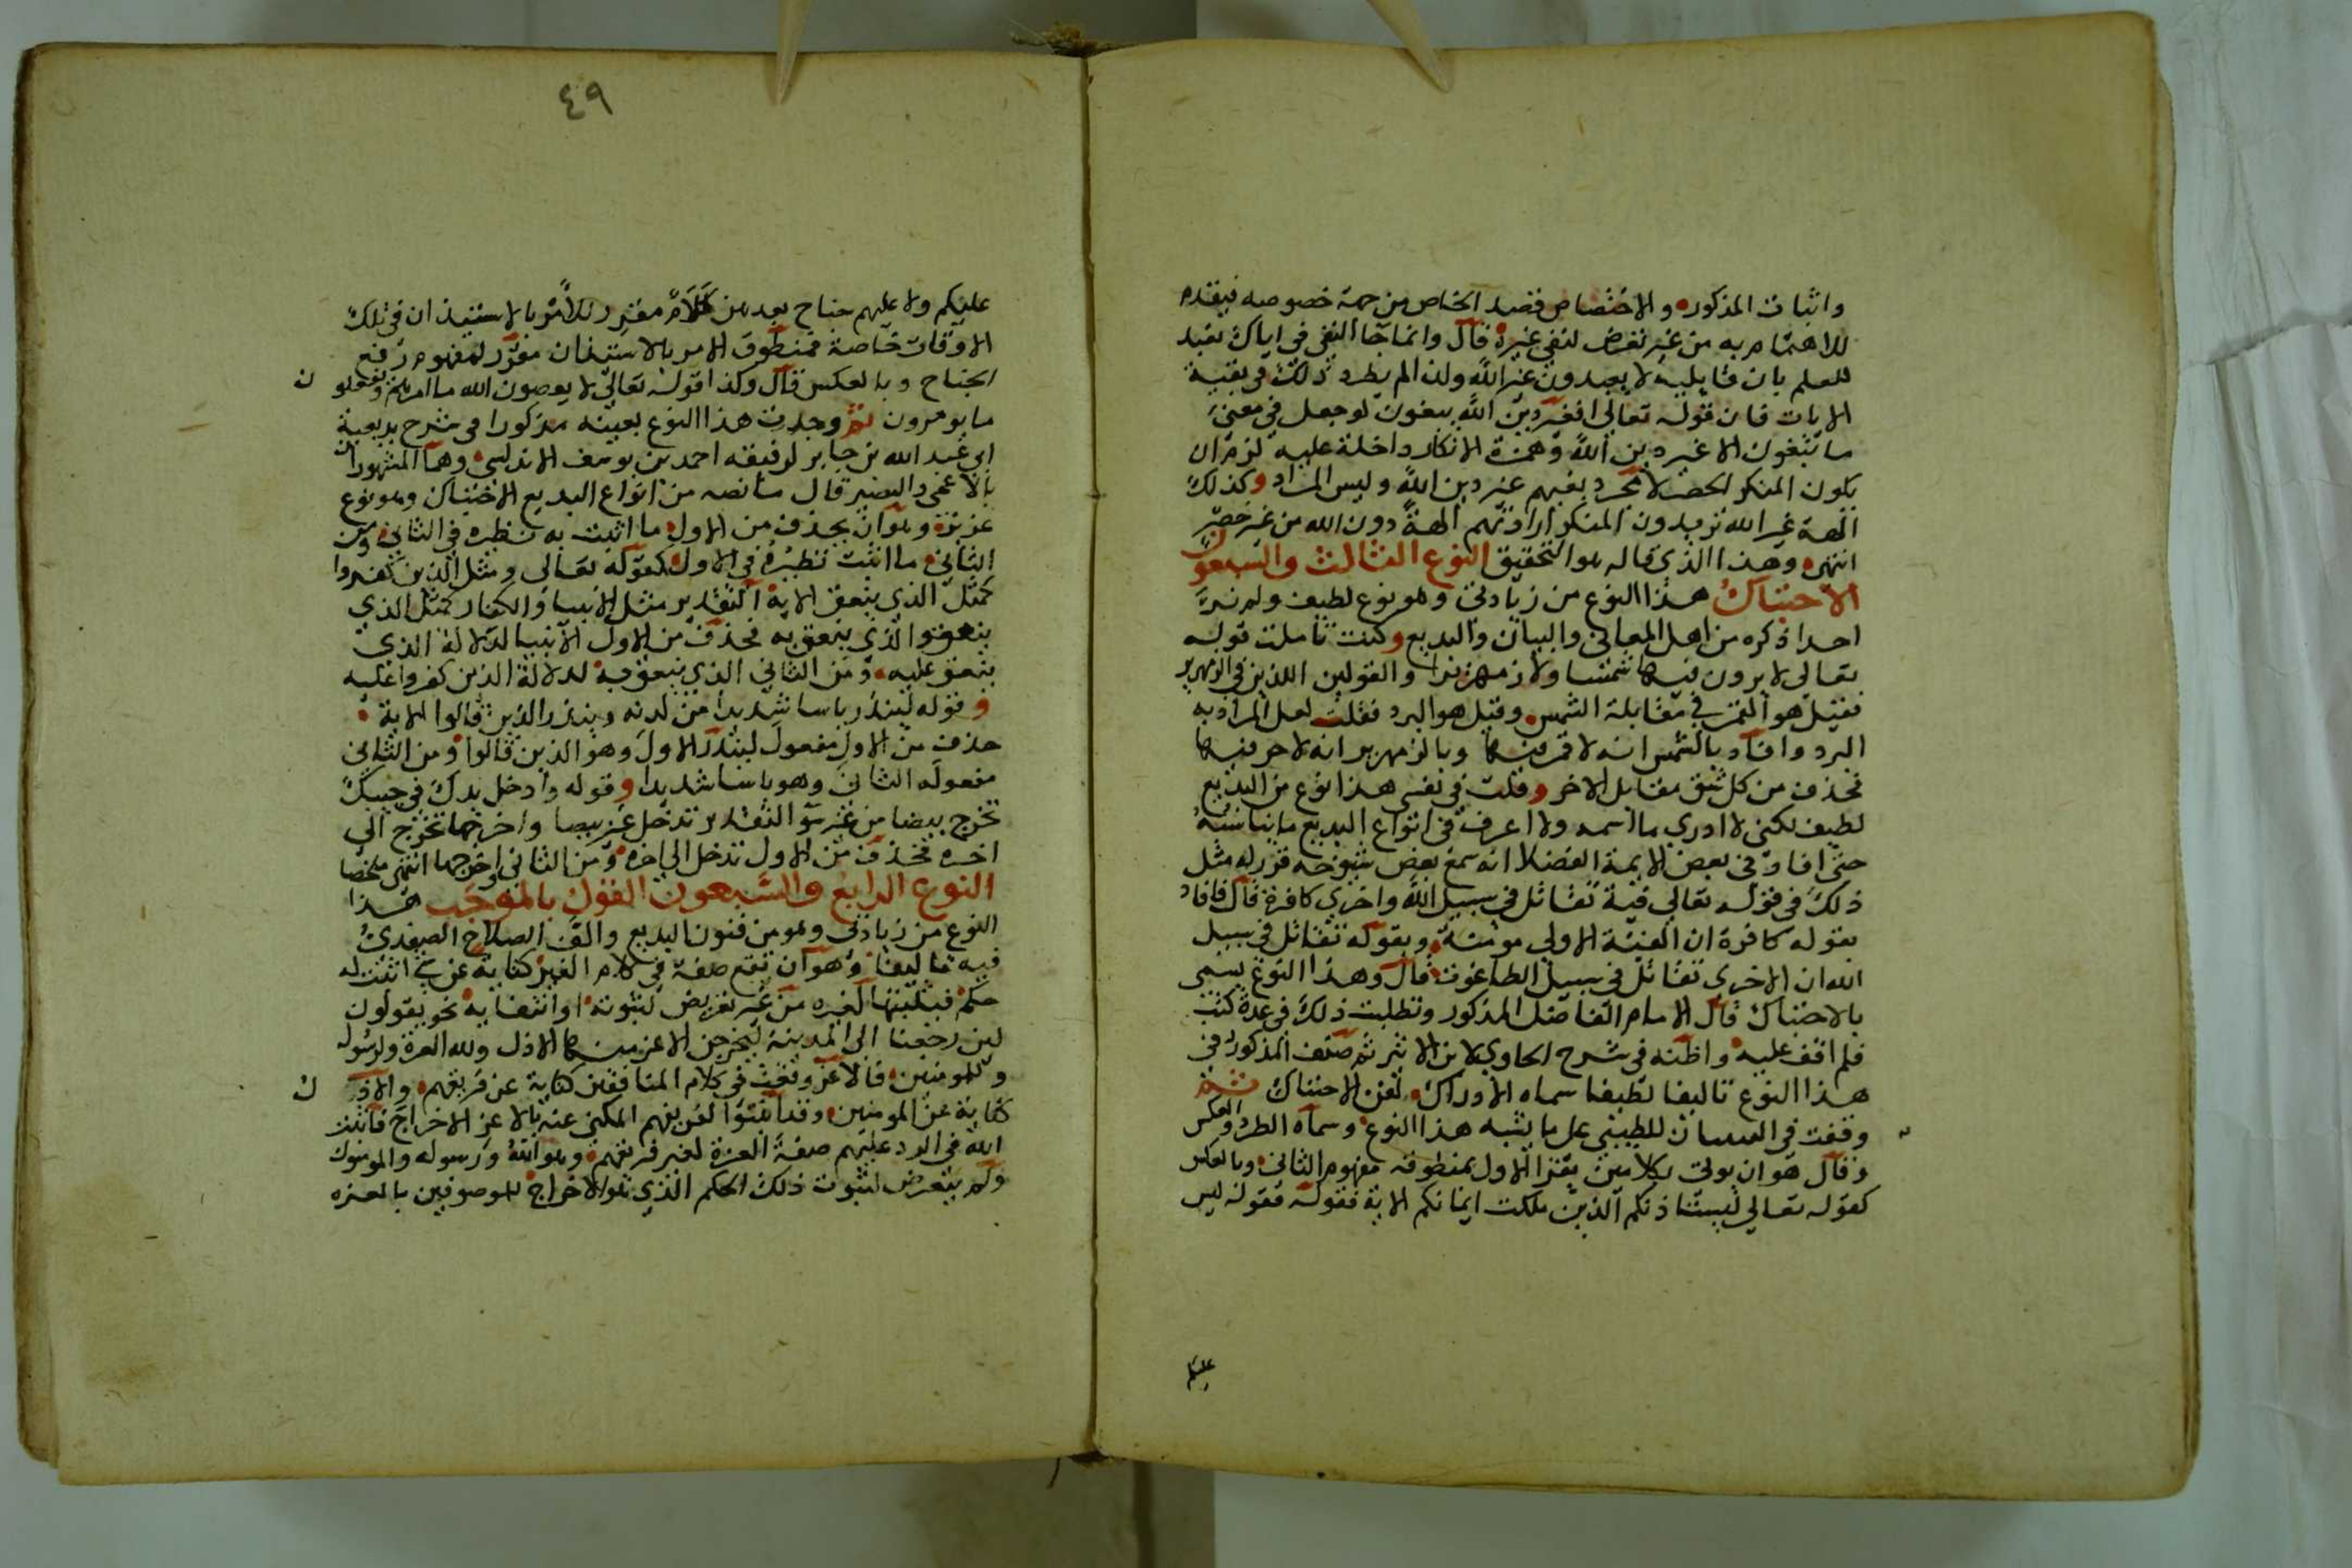 واثبات المذكور والاختصاص قصد الخاص من جهة خصوصه فيقدم
للاهتمام به من غير تعرض لنفي غيره قال وانما جا النفي في اياك نعبد
للعلم بان قايليه لا يعبدون غير الله ولذا لم يطرد ذلك في بقية
الايات فان قوله تعالى افغير دين الله يبغون لو جعل في معنى
ما يبغون الا غير دين الله وهمزة الانكار داخلة عليه لزم ان
يكون المنكر الحصر لا مجرد بغيهم غير دين الله وليس المراد وكذلك
الهة غير الله تريدون المنكر ارادتهم الهة دون الله من غير حصر
انتهى وهذا الذي قاله هو التحقيق النوع الثالث والسبعون
الاحتباك هذا النوع من زيادتي وهو نوع لطيف ولم نر
احدا ذكره من اهل المعاني والبيان والبديع وكنت تاملت قوله
تعالى لا يرون فيها شمسا ولا زمهريرا والقولين اللذين في الزمهرير
فقيل هو القمر في مقابلة الشمس وقيل هو البرد فقلت لعل المراد به
البرد وافاد بالشمس انه لا قمر فيها وبالزمهرير انه لا حر فيها
فحذف من كل شق مقابل الاخر وقلت في نفسي هذا نوع من البديع
لطيف لكني لا ادري ما اسمه ولا اعرف في انواع البديع ما يناسبه
حتى افادني بعض الايمة الفضلا انه سمع بعض شيوخه قرر له مثل
ذلك في قوله تعالى فية تقاتل في سبيل الله واخرى كافرة قال فافاد
بقوله كافرة ان الفئة الاولى مومنة وبقوله تقاتل في سبيل
الله ان الاخرى تقاتل في سبيل الطاغوت قال وهذا النوع يسمى
بالاحتباك قال الامام الفاضل المذكور وتطلبت ذلك في عدة كتب
فلم اقف عليه واظنه في شرح الحاوي لابن الاثير ثم صنف المذكور في
هذا النوع تاليفا لطيفا سماه الادراك لفن الاحتباك ثم
وقفت في التبيان للطيبي على ما يشبه هذا النوع وسماه الطرد والعكس
وقال هو ان يوتى بكلامين يقرر الاول بمنطوقه مفهوم الثاني وبالعكس
كقوله تعالى ليستاذنكم الذين ملكت ايمانكم الاية فقوله فقوله ليس
عليكم
٤٩
عليكم ولا عليهم جناح بعدهن كلام مقرر للامر بالاستيذان في تلك
الاوقات خاصة فمنطوق الامر بالاستيذان مقرر لمفهوم رفع
الجناح وبالعكس قال وكذا قوله تعالى لا يعصون الله ما امرهم ويفعلون
ما يومرون ثم وجدت هذا النوع بعينه مذكورا في شرح بديعية
ابي عبد الله بن جابر لرفيقه احمد بن يوسف الاندلسي وهما المشهوران
بالاعمى والبصير قال ما نصه من انواع البديع الاحتباك وهو نوع
عزيز وهو ان يحذف من الاول ما اثبت به نظيره في الثاني ومن
الثاني ما اثبت نظيره في الاول كقوله تعالى ومثل الذين كفروا
كمثل الذي ينعق الاية التقدير مثل الانبيا والكفار كمثل الذي
ينعق والذي ينعق به فحذف من الاول الانبيا لدلالة الذي
ينعق عليه ومن الثاني الذي ينعق به لدلالة الذين كفروا عليه
وقوله لينذر باسا شديدا من لدنه وينذر الذين قالوا الاية
حذف من الاول مفعول لينذر الاول وهو الذين قالوا ومن الثاني
مفعوله الثاني وهو باسا شديدا وقوله وادخل يدك في جيبك
تخرج بيضا من غير سو التقدير تدخل غير بيضا واخرجها تخرج الى
اخره فحذف من الاول تدخل الى اخره ومن الثاني واخرجها انتهى ملخصا
النوع الرابع والسبعون القول بالموجب هذا
النوع من زيادتي وهو من فنون البديع والف الصلاح الصفدي
فيه تاليفا وهو ان تقع صفة في كلام الغير كناية عن شي اثبت له
حكم فيثبتها لغيره من غير تعريض لثبوته او انتفايه نحو يقولون
لين رجعنا الى المدينة ليخرجن الاعز منها الاذل ولله العزة ولرسوله
وللمومنين فالاعز وقعت في كلام المنافقين كناية عن فريقهم والاذل
كناية عن المومنين وقد اثبتوا لفريقهم المكنى عنه بالاعز الاخراج فاثبت
الله في الرد عليهم صفة العزة لغير فريقهم وهو الله ورسوله والمومنون
ولم يتعرض لثبوت ذلك الحكم الذي هو الاخراج للموصوفين بالعزه